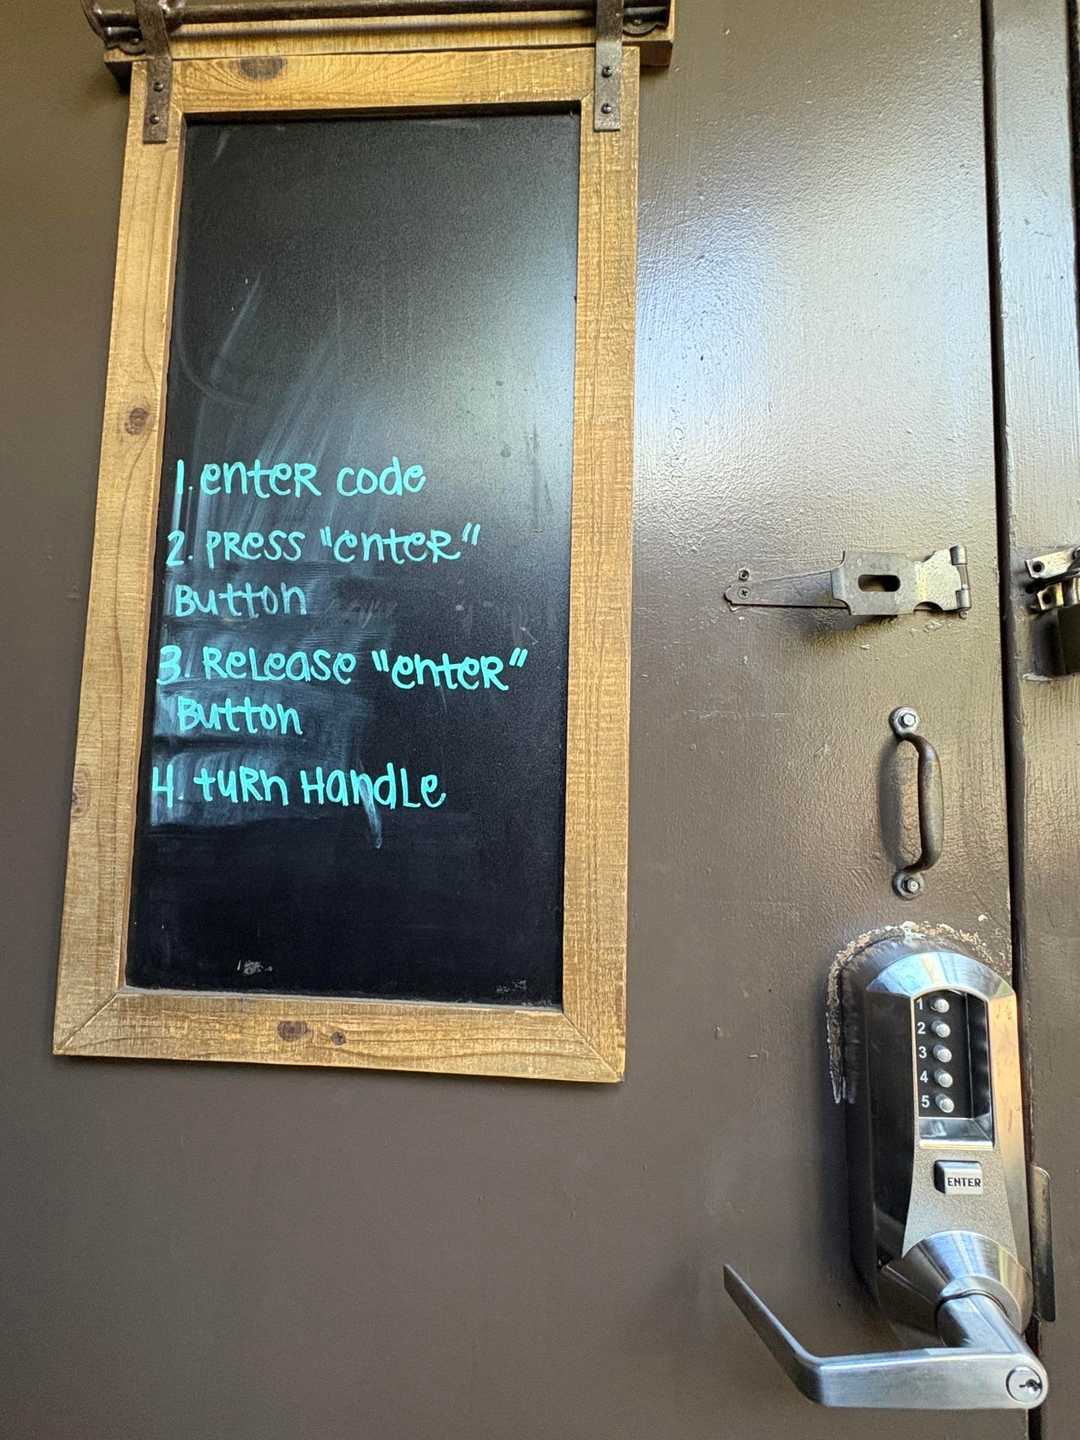 1. enter code
2. press "enter"
Button
3. Release "enter"
Button
4. turn Handle
1
2
3
4
5
ENTER